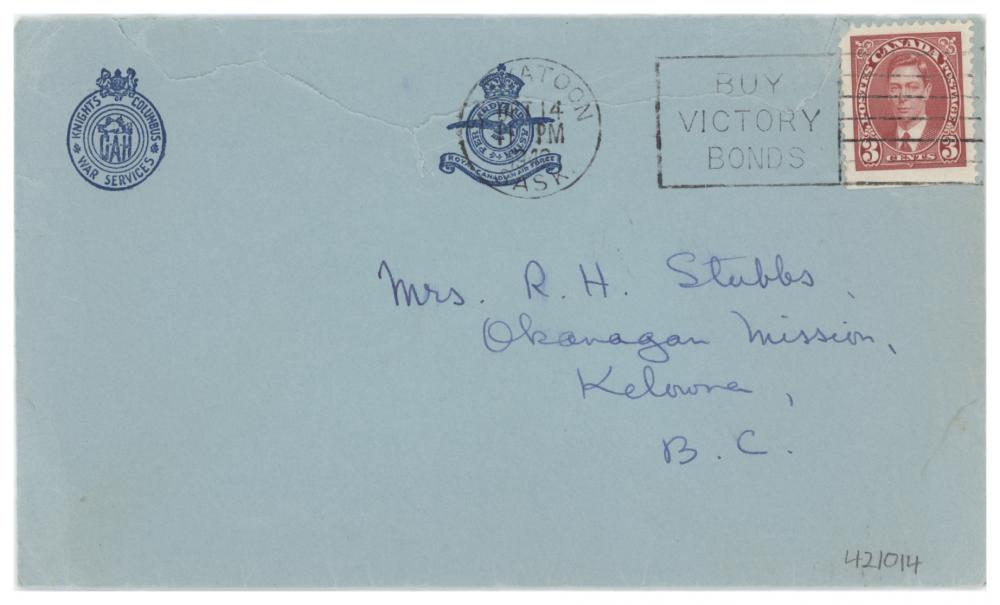 KNIGHTS COLUMBUS
CAH
WAR SERVICES
ATOON
14
PM
ASK.
PER ARDUA AD ASTRA
ROYAL CANADIAN AIR FORCE
BUY
VICTORY
BONDS
POSTES CANADA POSTAGE
3 CENTS 3
Mrs. R. H. Stubbs,
Okanagan Mission,
Kelowna,
B. C.
421014